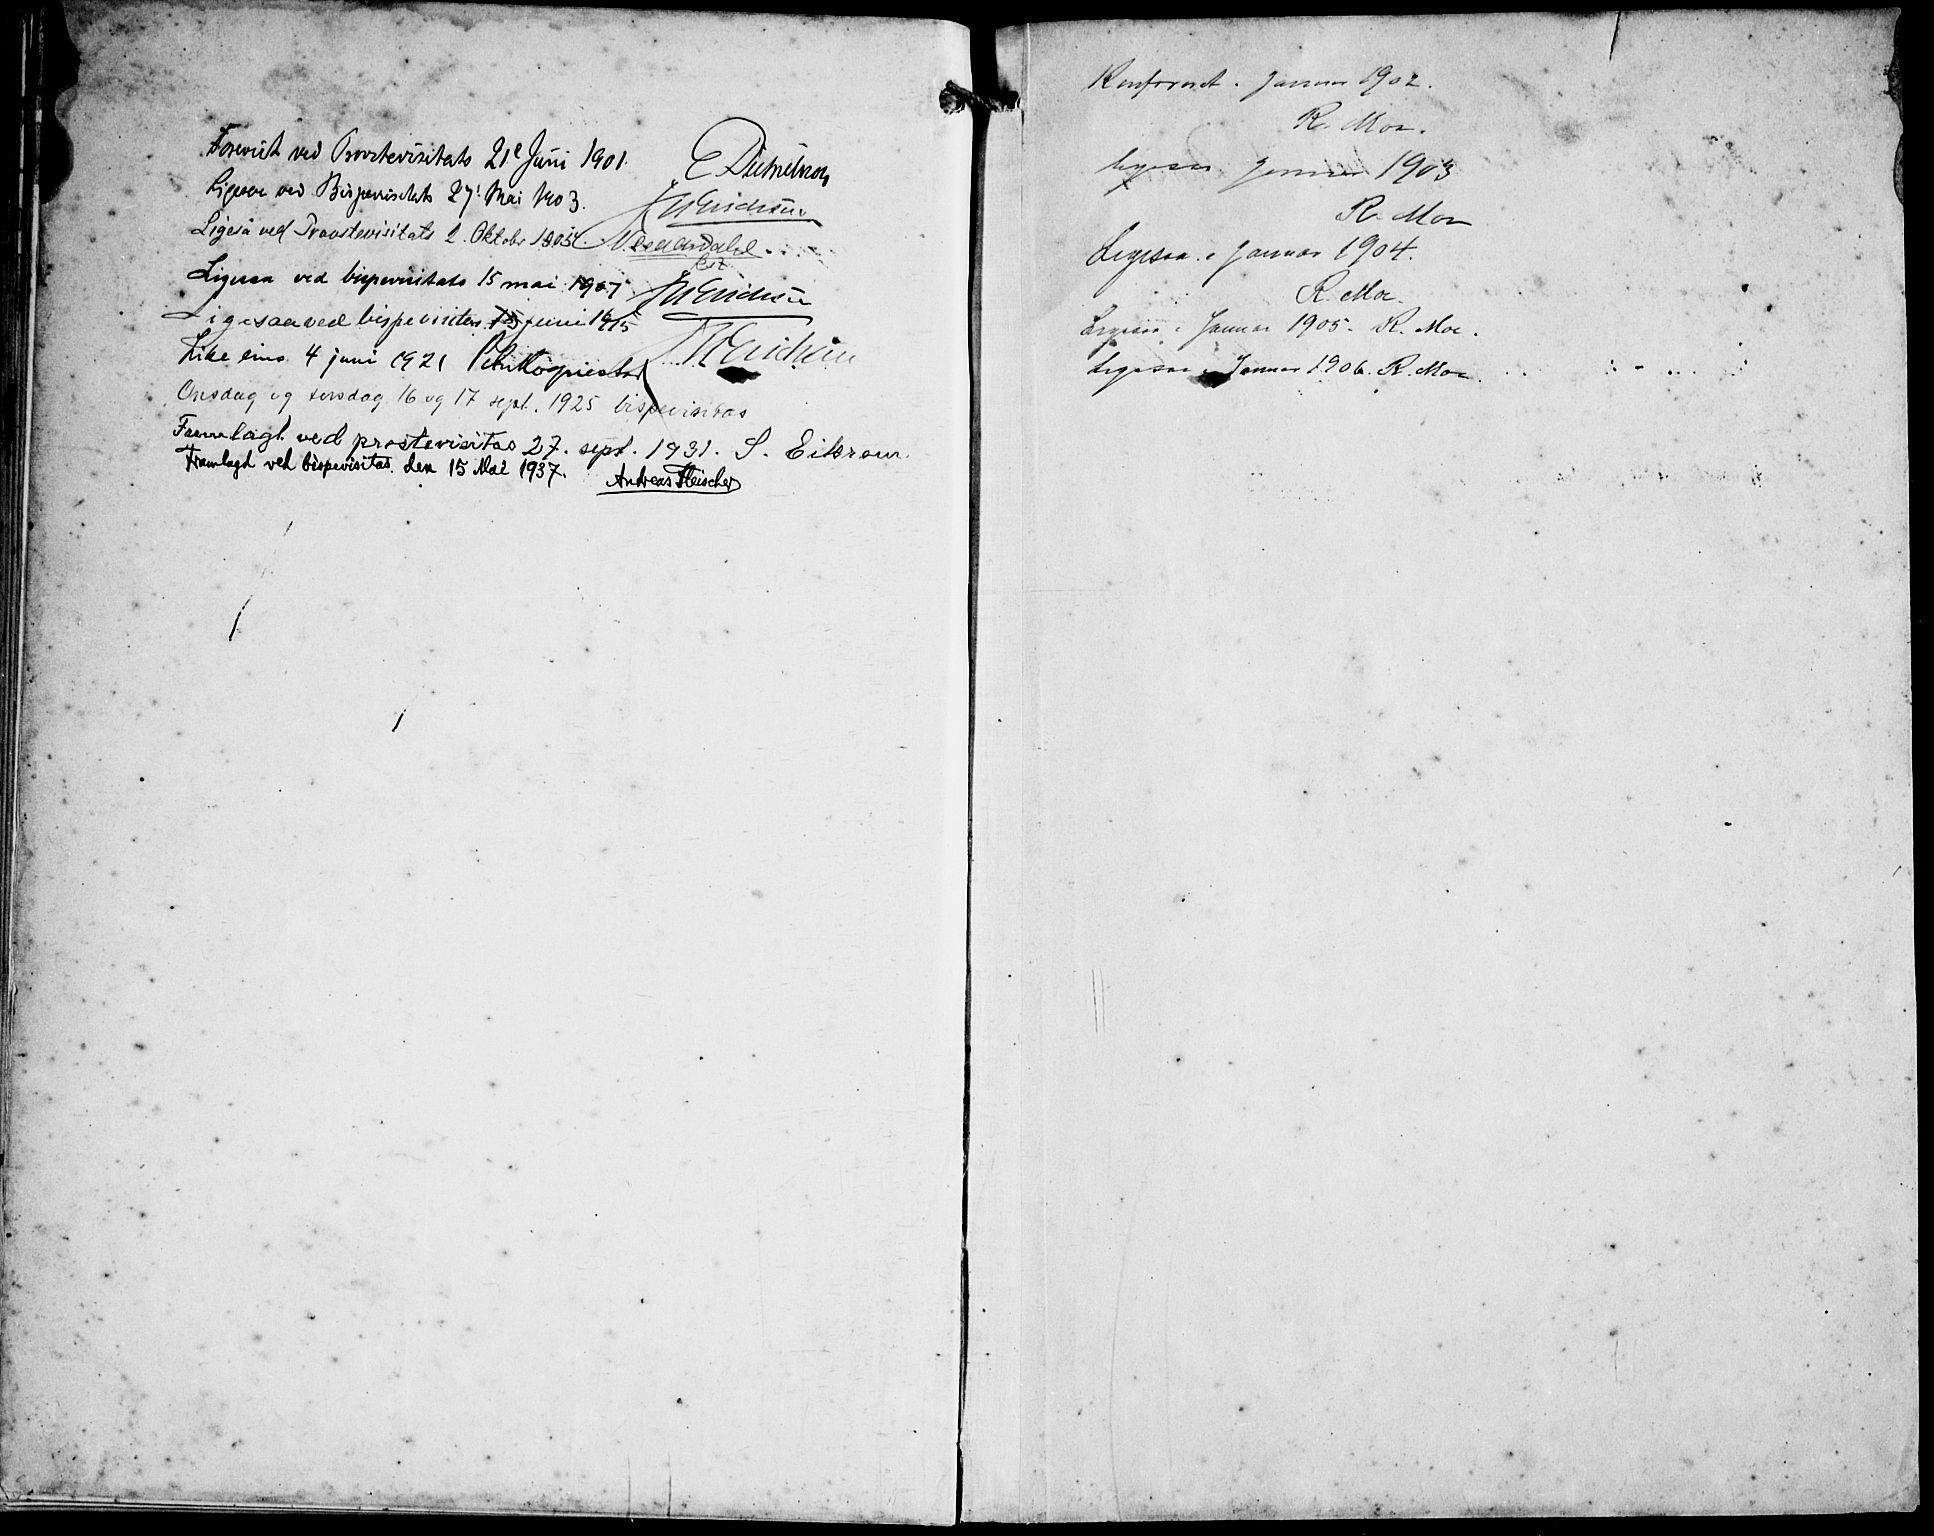 Forevist ved Provstevisitats 21e Juni 1901.
Ligesaa ved Bispevisitats 27! Mai 1903.
Ligeså ved Provstevisitats 2. Oktobr 1905.
Ligesaa ved bispevisitats 15 mai 1907
Ligesaa ved bispevisitas juni 1915
Like eins 4 juni 1921
Onsdag og torsdag 16 og 17 sept. 1925 bispevisitas
Framlagt ved prostevisitas 27. sept. 1931. S. Eikrem.
Framlagt ved bispevisitas den 15 Mai 1937. Andreas Fleischer
Konfereret. Januar 1902.
R. Moe.
Ligesaa Januar 1903
R. Moe
Ligesaa i Januar 1904.
R. Moe.
Ligesaa i Januar 1905. R. Moe.
Ligesaa i Januar 1906. R. Moe.